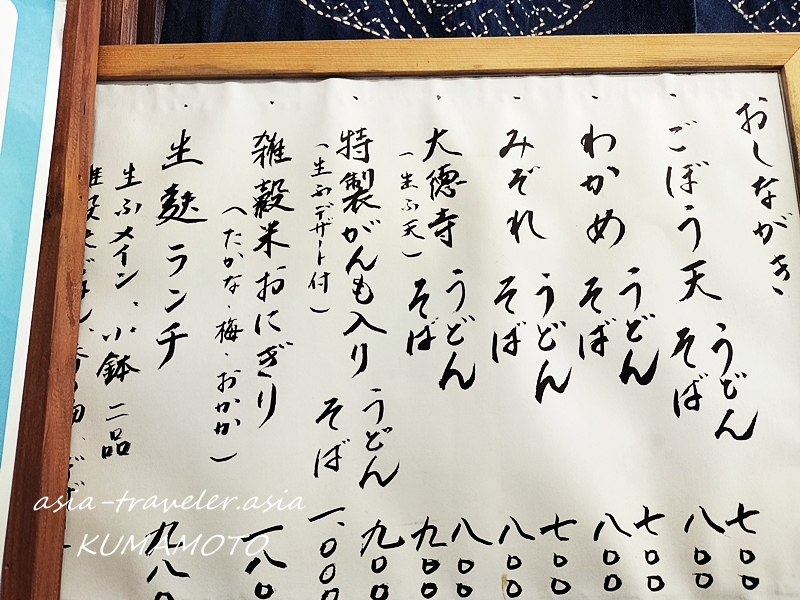 おしながき
ごぼう天 うどん 七〇〇
そば 八〇〇
わかめ うどん 七〇〇
そば 八〇〇
みぞれ うどん 七〇〇
そば 八〇〇
大德寺 うどん 八〇〇
(生ふ天) そば 九〇〇
特製がんも入り うどん 九〇〇
(生ふデザート付) そば 一、〇〇〇
雑穀米おにぎり 一八〇
(たかな・梅・おかか)
生麩ランチ 九八〇
生ふメイン、小鉢二品
asia-traveler.asia
KUMAMOTO